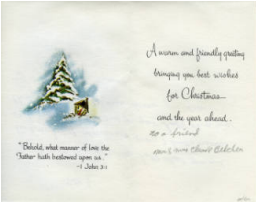 "Behold, what manner of love the
Father hath bestowed upon us."
-1 John 3:1
A warm and friendly greeting
bringing you best wishes
for Christmas
and the year ahead..
a friend